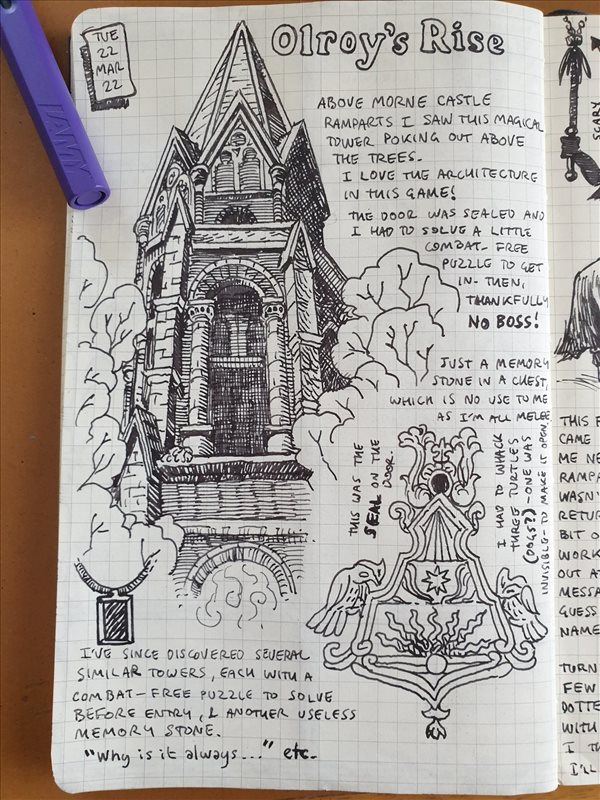 TUE
22
MAR
22
Olroy's Rise
LAMY
ABOVE MORNE CASTLE
RAMPARTS I SAW THIS MAGICAL
TOWER POKING OUT ABOVE
THE TREES.
I LOVE THE ARCHITECTURE
IN THIS GAME!
THE DOOR WAS SEALED AND
I HAD TO SOLVE A LITTLE
COMBAT-FREE
PUZZLE TO GET
IN. THEN,
THANKFULLY
NO BOSS!
JUST A MEMORY
STONE IN A CHEST,
WHICH IS NO USE TO ME
AS I'M ALL MELEE.
THIS WAS THE
SEAL ON THE
DOOR.
I HAD TO WHACK
THREE TURTLES
(DOGS?) - ONE WAS
INVISIBLE - TO MAKE IT OPEN.
I'VE SINCE DISCOVERED SEVERAL
SIMILAR TOWERS, EACH WITH A
COMBAT-FREE PUZZLE TO SOLVE
BEFORE ENTRY, & ANOTHER USELESS
MEMORY STONE.
"Why is it always..." etc.
SCARY
THIS
CAME
ME
RAMPA
WASN'
RETUR
BIT O
WORK
OUT A
MESSA
GUESS
NAME
TURN
FEW
DOTTE
WITH
I
I'LL